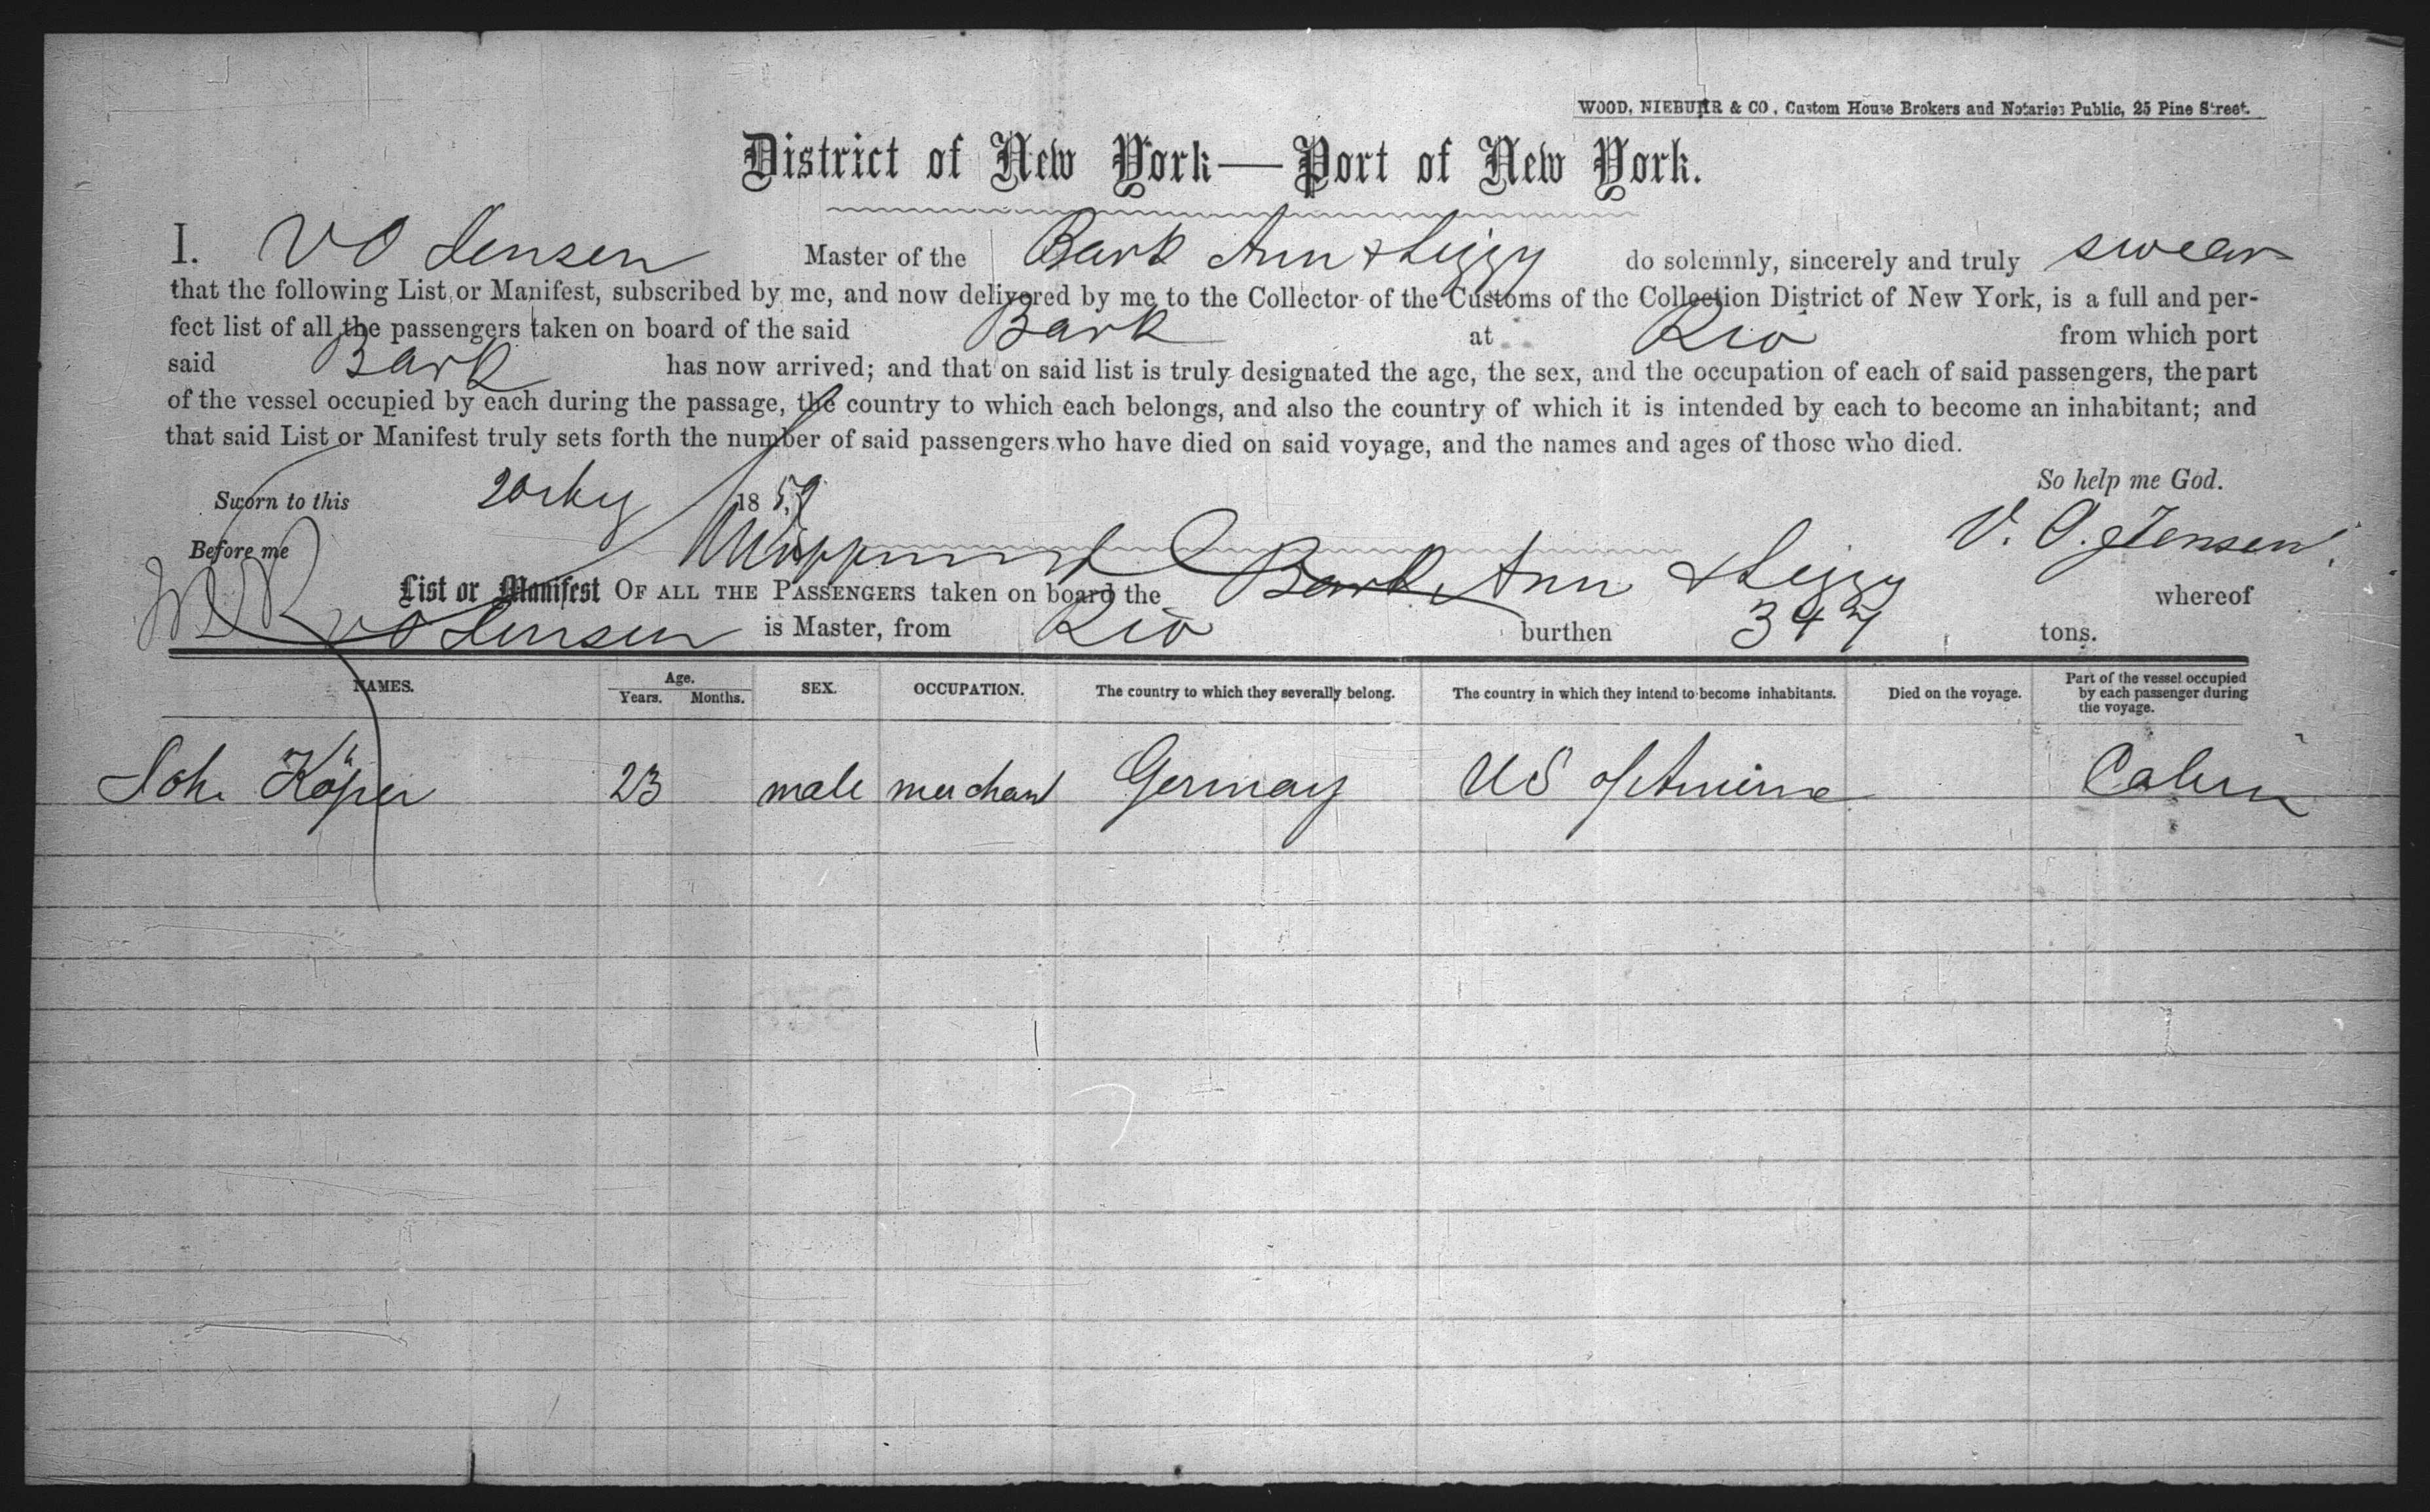 WOOD, NIEBUHR & CO, Custom House Brokers and Notaries Public, 25 Pine Street.
District of New York—Port of New York.
I. V O Jensen Master of the Bark Ann & Lizzy do solemnly, sincerely and truly swear
that the following List, or Manifest, subscribed by me, and now delivered by me to the Collector of the Customs of the Collection District of New York, is a full and per-
fect list of all the passengers taken on board of the said Bark at Rio from which port
said Bark has now arrived; and that on said list is truly designated the age, the sex, and the occupation of each of said passengers, the part
of the vessel occupied by each during the passage, the country to which each belongs, and also the country of which it is intended by each to become an inhabitant; and
that said List or Manifest truly sets forth the number of said passengers who have died on said voyage, and the names and ages of those who died.
So help me God.
Sworn to this 1859
V. O. Jensen.
Before me
List or Manifest OF ALL THE PASSENGERS taken on board the Bark Ann & Lizzy whereof
V O Jensen is Master, from Rio burthen 347 tons.
NAMES. Age. Years. Months. SEX. OCCUPATION. The country to which they severally belong. The country in which they intend to become inhabitants. Died on the voyage. Part of the vessel occupied by each passenger during the voyage.
Joh. Köper 23 male merchant Germany US of America Cabin